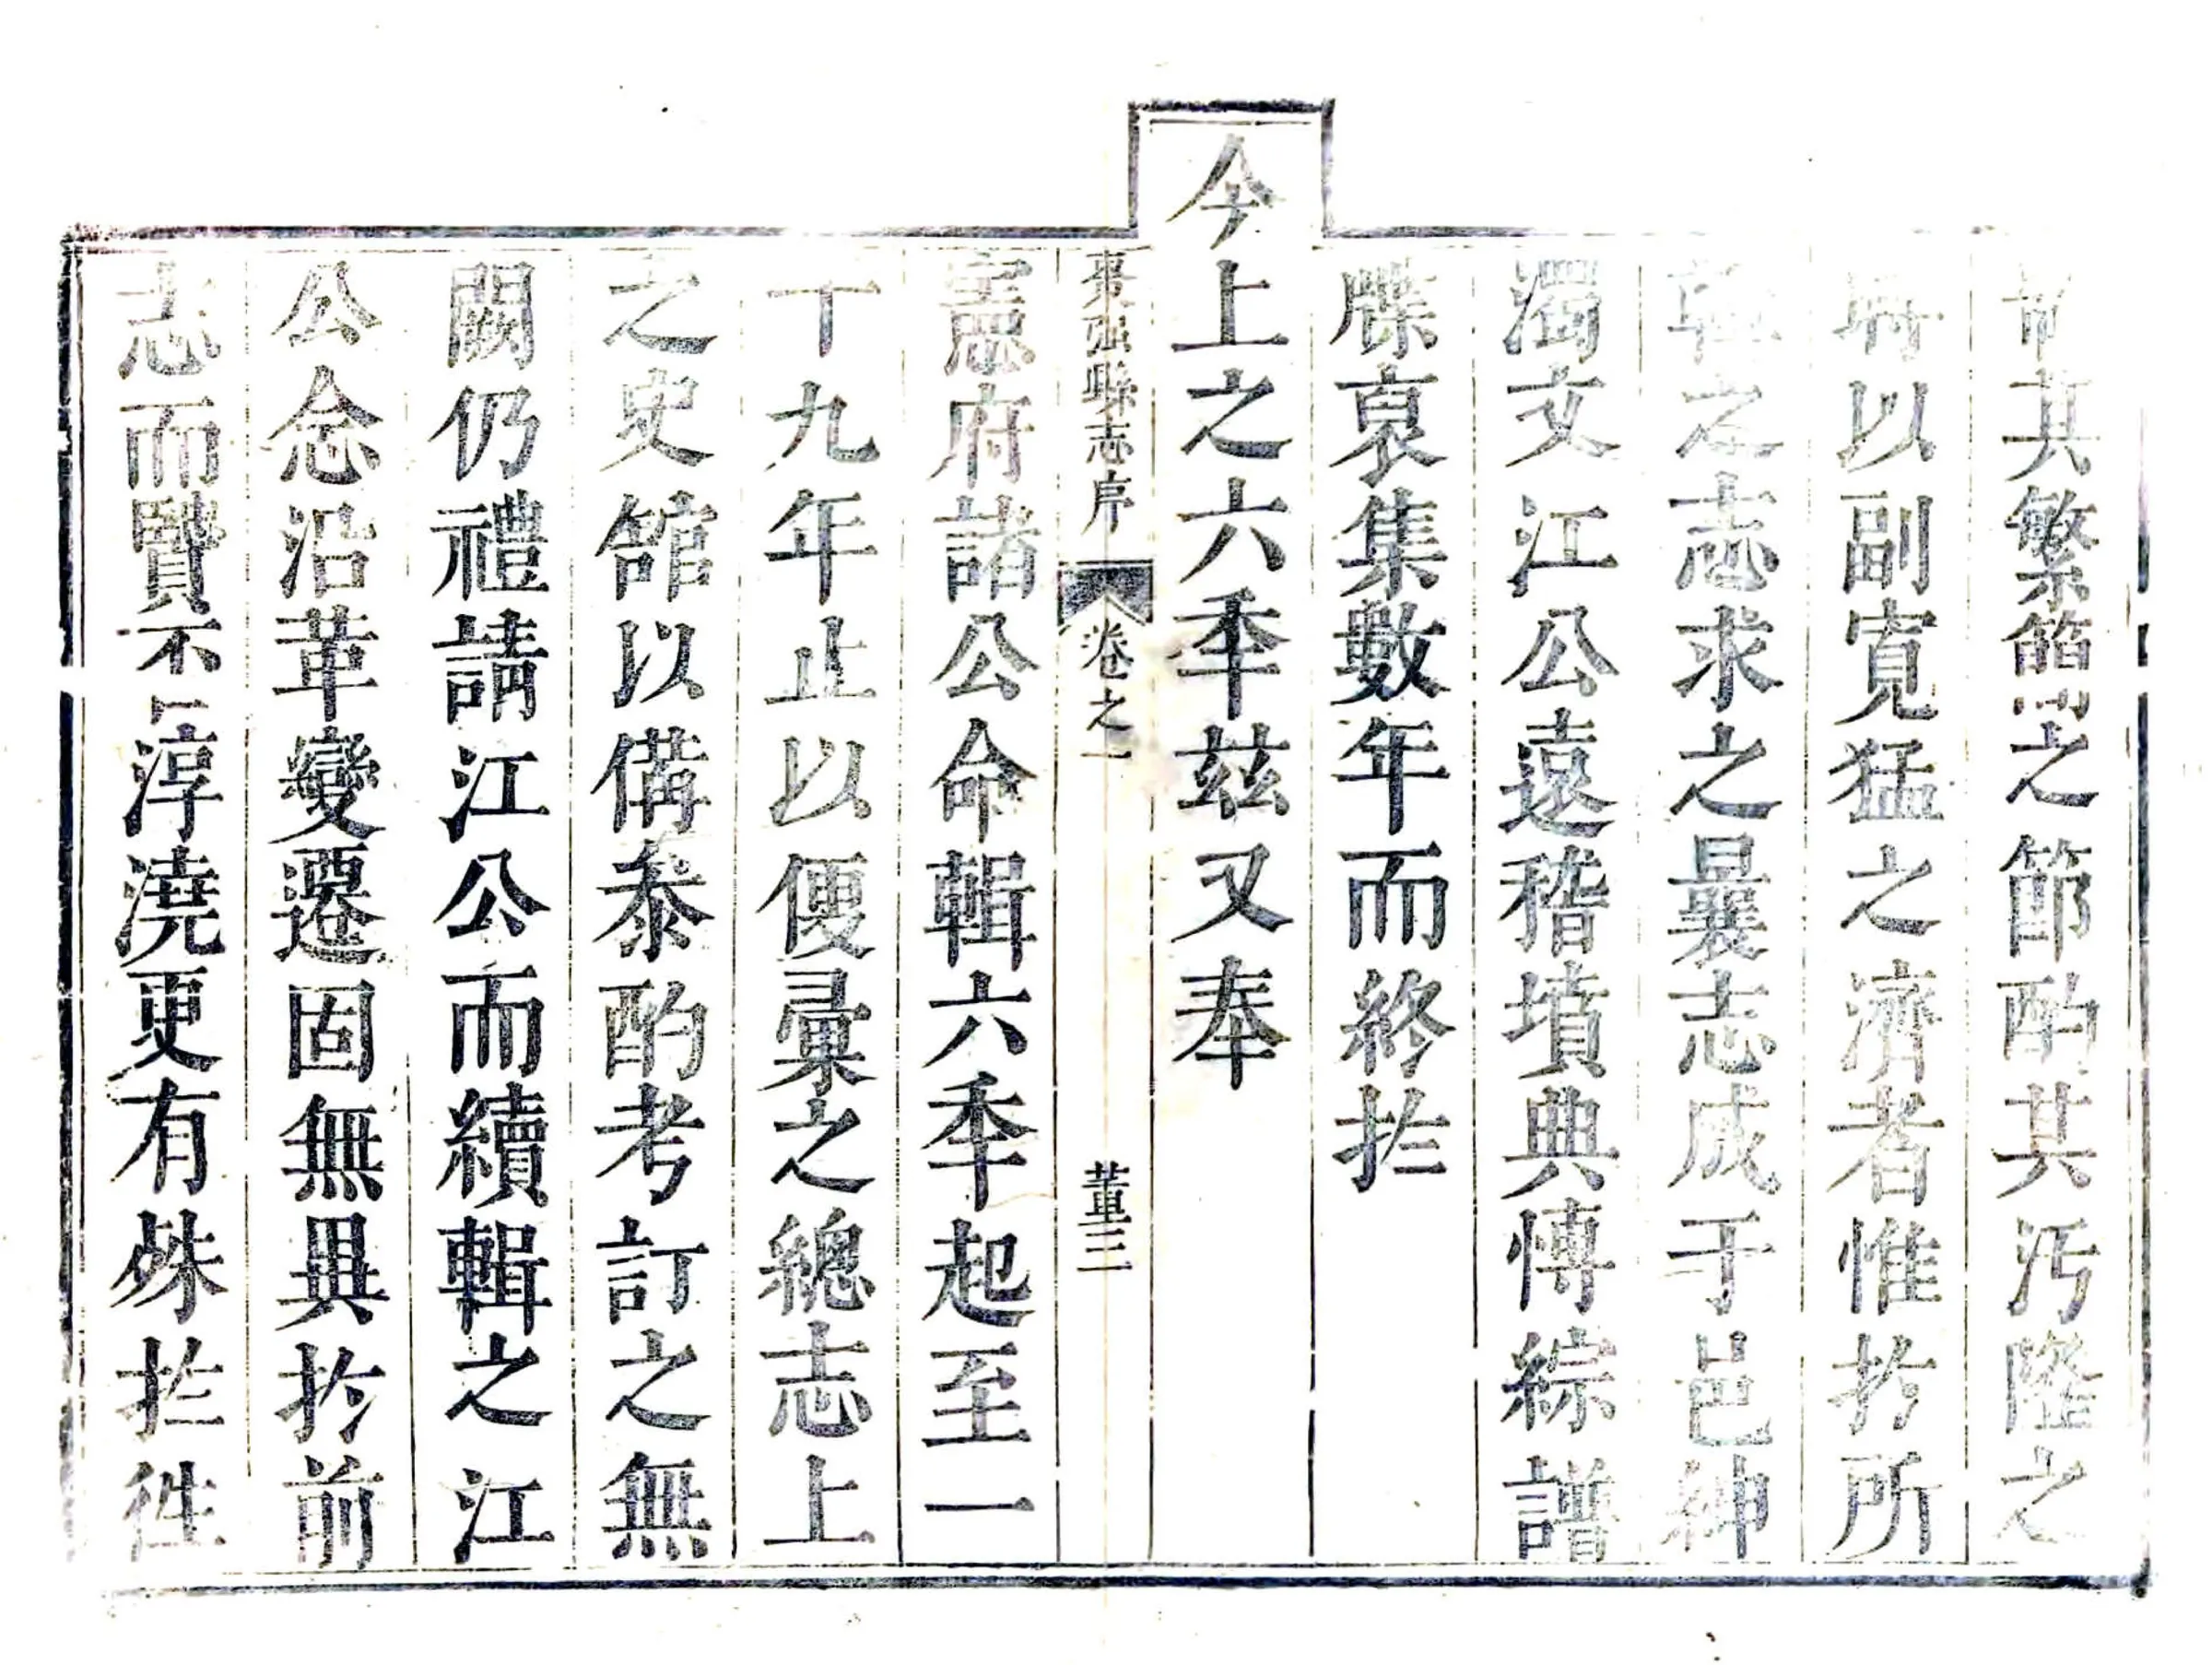 其繁簡之節酌其汚隆之
以副寬猛之濟者惟扵所
之志求之曩志成于邑紳
濁文江公遠稽墳典博綜譜
牒裒集數年而終扵
今上之六季茲又奉
棗強縣志序 卷之一 董三
憲府諸公命輯六季起至一
十九年止以便彙之總志上
之史舘以備叅酌考訂之無
闕仍禮請江公而續輯之江
公念沿革變遷固無異扵前
志而賢不淳澆更有殊扵徃